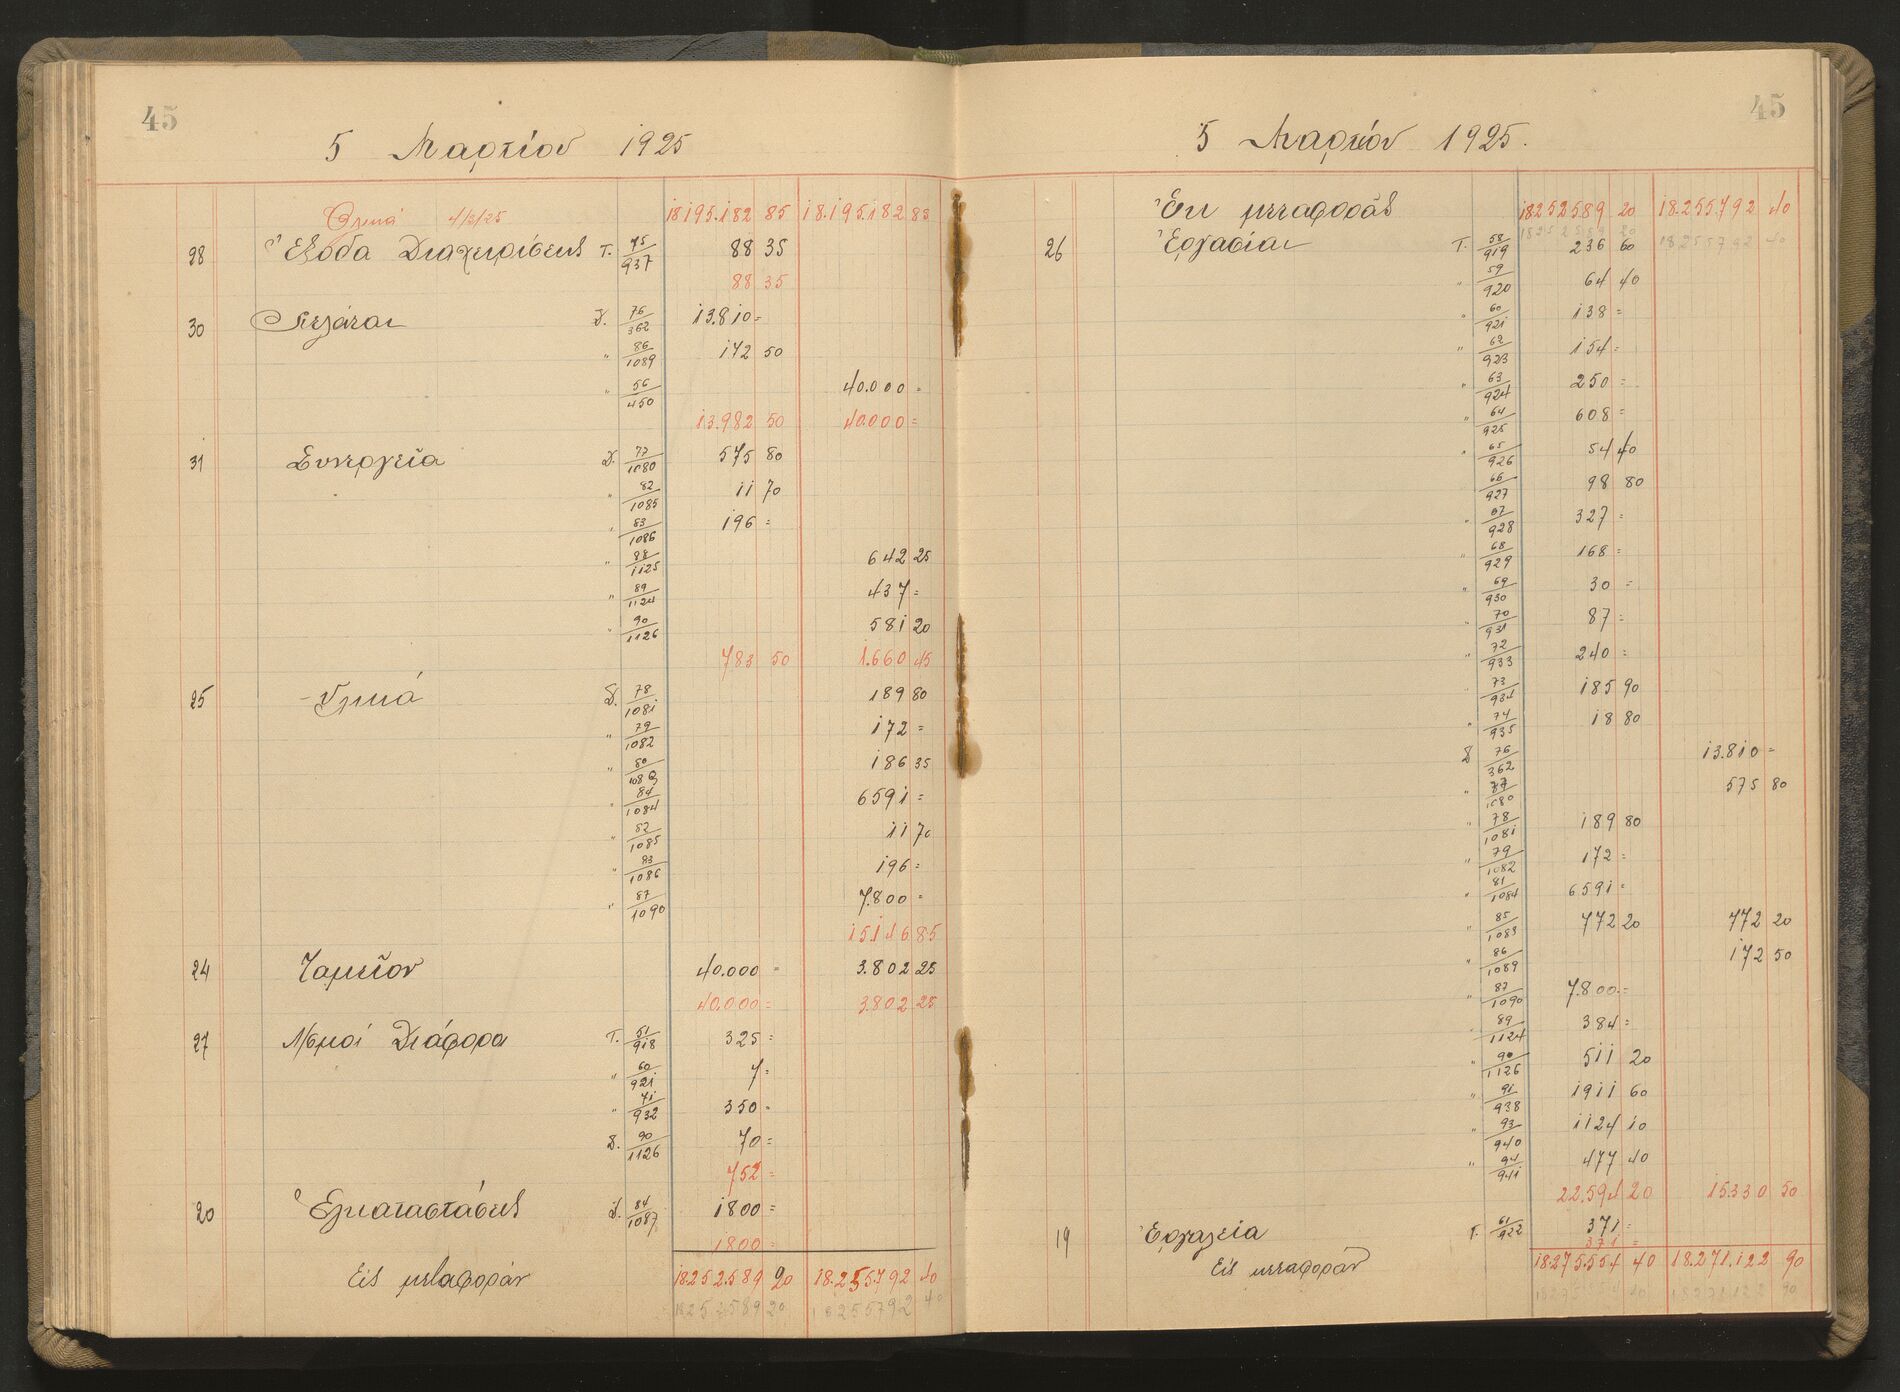 45
5 Μαρτίου 1925
Ολικά 4/3/25 18195.182 85 18.195.182 85
28 Έξοδα Διαχειρίσεως Τ. 75/937 88 35
88 35
30 Πελάται Δ. 76/362 13.810=
" 86/1089 172 50
" 56/450 40.000=
13.982 50 40.000=
31 Συνεργεία Δ. 77/1080 575 80
" 82/1085 11 70
" 83/1086 196=
" 88/1125 642 25
" 89/1124 437=
" 90/1126 581 20
783 50 1.660 45
25 Υλικά Δ. 78/1081 189 80
" 79/1082 172=
" 80/1083 186 35
" 81/1084 6591=
" 82/1085 11 70
" 83/1086 196=
" 87/1090 7.800=
15146 85
24 Ταμείον 40.000= 3.802 25
40.000= 3802 25
27 Λ/σμοί Διάφορα Τ. 51/918 325=
" 60/921 7=
" 71/932 350=
Δ. 90/1126 70=
752=
20 Εγκαταστάσεις Δ. 84/1087 1800=
1800=
Εις μεταφοράν 18252.589 20 18.255.792 40
18252589 20 18255792 40
45
5 Μαρτίου 1925.
Εκ μεταφοράς 18252589 20 18.255.792 40
18252589 20 18255792 40
26 Εργασίαι Τ. 58/919 236 60
" 59/920 64 40
" 60/921 138=
" 62/923 154=
" 63/924 250=
" 64/925 608=
" 65/926 54 40
" 66/927 98 80
" 67/928 327=
" 68/929 168=
" 69/930 30=
" 70/931 87=
" 72/933 240=
" 73/934 185 90
" 74/935 18 80
Δ 76/362 13.810=
" 77/1080 575 80
" 78/1081 189 80
" 79/1082 172=
" 81/1084 6591=
" 85/1088 772 20 772 20
" 86/1089 172 50
" 87/1090 7.800.=
" 89/1124 384=
" 90/1126 511 20
" 91/938 1911 60
" 93/940 1124 10
" 94/941 477 40
22.594 20 15.330 50
19 Εργαλεία Τ. 61/922 371=
371=
Εις μεταφοράν 18.275.554 40 18.271.122 90